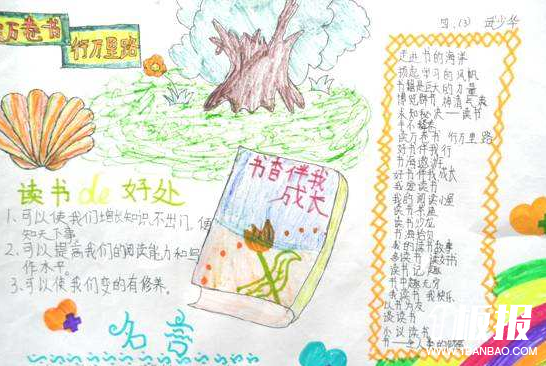 读万卷书
行万里路
四.(3)
书香伴我
成长
读书de好处
1、可以使我们增长知识,不出门,便
知天下事。
2、可以提高我们的阅读能力和写
作水平。
3、可以使我们变的有修养。
名言
走进书的海洋
扬起学习的风帆
书籍是巨大的力量
博览群书
求知秘决——读书
读万卷书 行万里路
好书伴我行
书海遨游
好书伴我成长
我爱读书
我的阅读小屋
读书乐趣
读书沙龙
书海拾贝
我的读书故事
多读书 读好书
读书记趣
书中趣无穷
我读书 我快乐
以书为友
谈读书
小议读书
板报
WWW.1BANBAO.COM